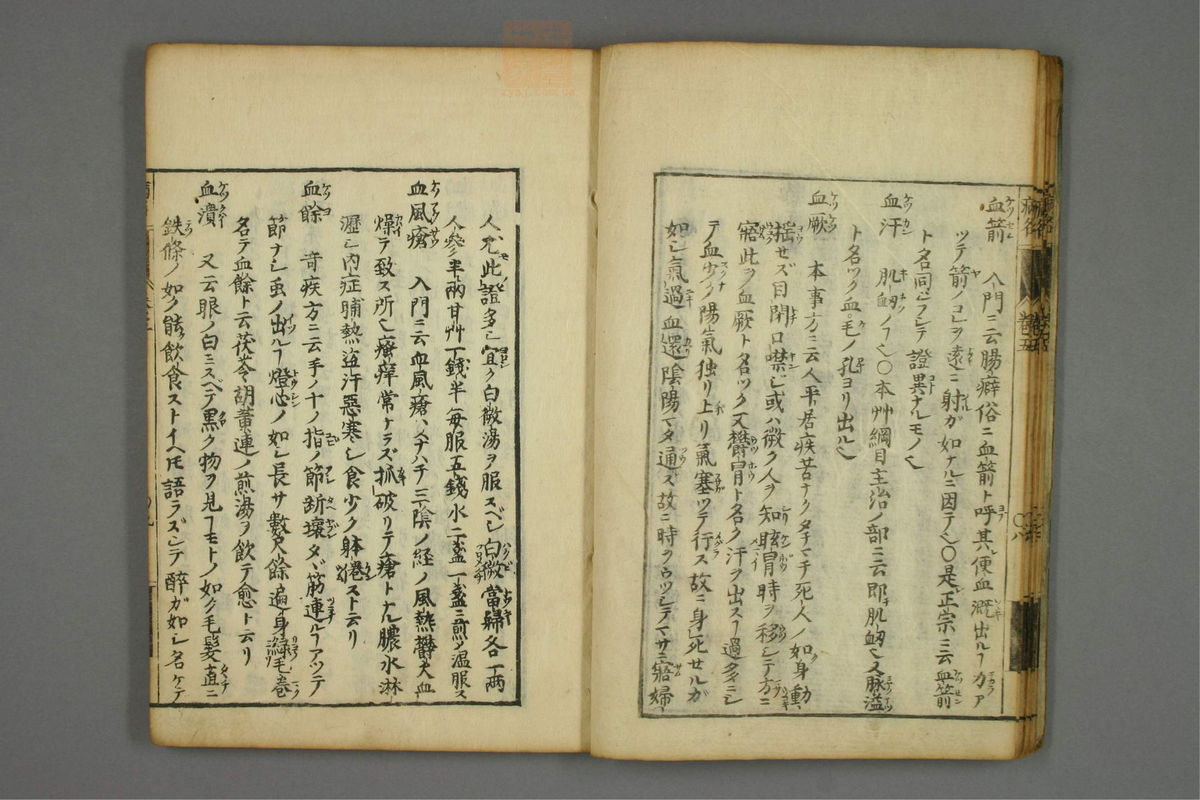 血箭 入門ニ云腸癖俗ニ血箭ト呼其便血濺出ルヿ力アツ
ツテ箭ノコヲ遠ニ射ガ如ナルニ因テ也〇是正宗ニ云血箭
ト名同フシテ證異ナルモノ也
血汗 肌衂ノヿ也〇本艸綱目主治ノ部ニ云即肌衂也又脉溢
ト名ツク血毛ノ孔ヨリ出ル也
血厥 本事方ニ云人平居疾苦ナクタチマチ死人ノ如身動
揺セズ目閉口噤シ或ハ微ク人ヲ知眩冒時ヲ移シテ方ニ
寤此ヲ血厥ト名ツク又欝冒ト名ク汗ヲ出スヿ過多ニシ
テ血少ク陽氣独リ上リ氣塞ツテ行ス故ニ身死セルガ
如シ氣過血還陰陽マタ通ズ故ニ時ヲウツシテマサニ寤婦
人尤此證多シ宜ク白薇湯ヲ服スベシ白薇當歸各一兩
人參半兩甘艸一錢半毎服五錢水二盞一盞ニ煎メ温服ス
血風瘡 入門ニ云血風瘡ハスナハチ三陰ノ経ノ風熱欝火血
燥テ致ス所也瘙痒常ナラズ抓破リテ瘡トナル膿水淋
瀝シ内症晡熱盗汗悪寒シ食少ク躰ストエリ
血餘 竒疾方ニ云手ノ十ノ指ノ節断壊タヾ筋連ルヿアツテ
節ナシ虫ノ出ルヿ燈心ノ如シ長サ數尺餘遍身緑毛巻
名テ血餘ト云茯苓胡黄連ノ煎湯ヲ飲テ愈ト云リ
血潰 又云眼ノ白ミスベテ黒ク物ヲ見ヿモトノ如ク毛髪直ニ
鉄條ノ如ク能飲食ストイヘ𪜈語ラズシテ醉ガ如シ名ケテ